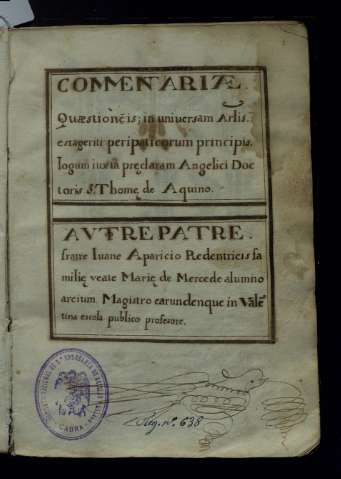 COMMENTARIÆ.
Quæstioncis; in universam Arlis.
estageriti peripaticorum principis.
logum iuxta pręclaram Angelici Doc
toris S. Thomę de Aquino.
AVTRE PATRE
fratre Iuane Aparicio Redentricis fa
milię veate Marię de Mercede alumno
arcium Magistro earundenque in Valē
tina escola publico profesore.
CABRA
Reg. nº. 638